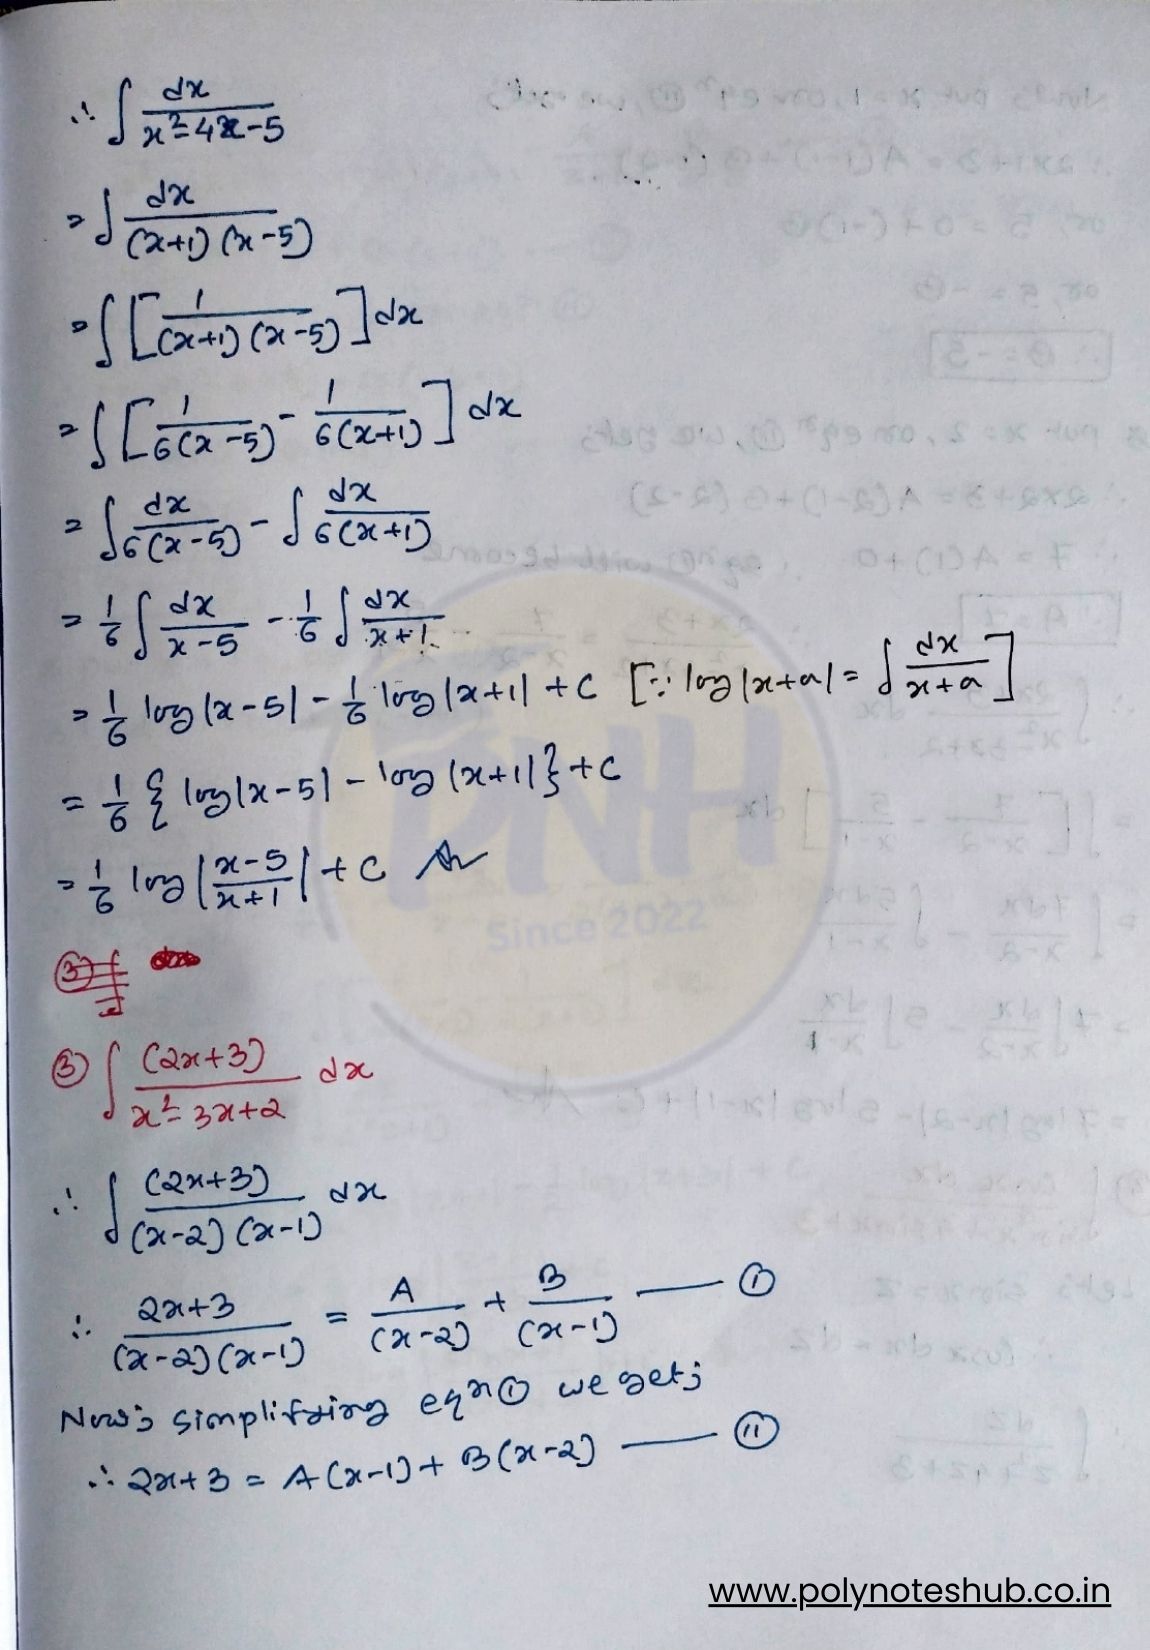 ∴ ∫ dx / (x² - 4x - 5)
= ∫ dx / ((x+1)(x-5))
= ∫ [1 / ((x+1)(x-5))] dx
= ∫ [1 / 6(x-5) - 1 / 6(x+1)] dx
= ∫ dx / 6(x-5) - ∫ dx / 6(x+1)
= 1/6 ∫ dx / (x-5) - 1/6 ∫ dx / (x+1)
= 1/6 log|x-5| - 1/6 log|x+1| + C [∵ log|x+a| = ∫ dx / (x+a)]
= 1/6 { log|x-5| - log|x+1| } + C
= 1/6 log |(x-5) / (x+1)| + C
PNH
Since 2022
③ ∫ (2x+3) / (x² - 3x + 2) dx
∴ ∫ (2x+3) / ((x-2)(x-1)) dx
∴ (2x+3) / ((x-2)(x-1)) = A / (x-2) + B / (x-1) — Ⓘ
Now; simplifying eqn Ⓘ we get;
∴ 2x+3 = A(x-1) + B(x-2) — ⓘⓘ
www.polynoteshub.co.in